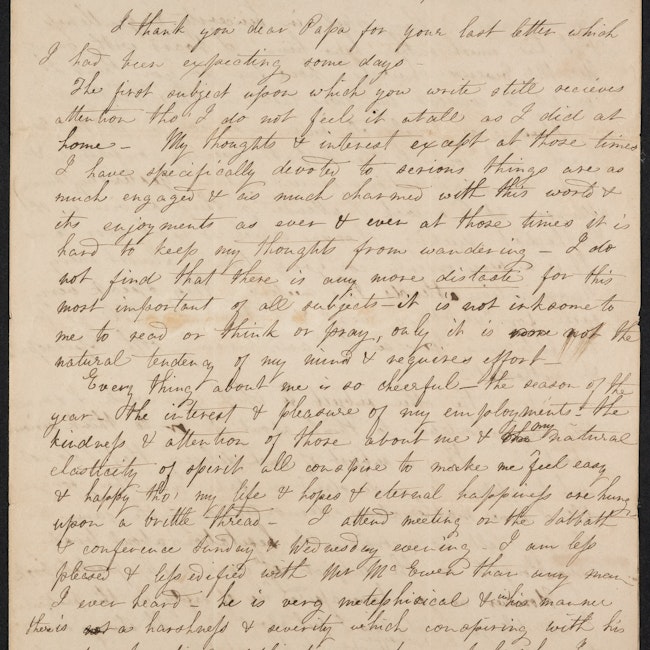 I thank you dear Papa for your last letter which
I had been expecting some days -
The first subject upon which you write still recieves
attention tho' I do not feel it atall as I did at
home - My thoughts & interest except at those times
I have specifically devoted to serious things are as
much engaged & as much charmed with this world &
its enjoyments as ever & even at those times it is
hard to keep my thoughts from wandering - I do
not find that there is any more distaste for this
most important of all subjects - it is not irksome to
me to read or think or pray, only it is not the
natural tendency of my mind & requires effort -
Every thing about me is so cheerful - the season of the
year - the interest & pleasure of my employments - the
kindness & attention of those about me & my natural
elasticity of spirit all conspire to make me feel easy
& happy tho' my life & hopes & eternal happiness are hung
upon a brittle thread - I attend meeting on the sabbath
& conference Sunday & Wednesday evening - I am less
pleased & less edified with Mr McEwen than any man
I ever heard - he is very metephisical & in his manner
there is a harshness & severity which conspiring with his